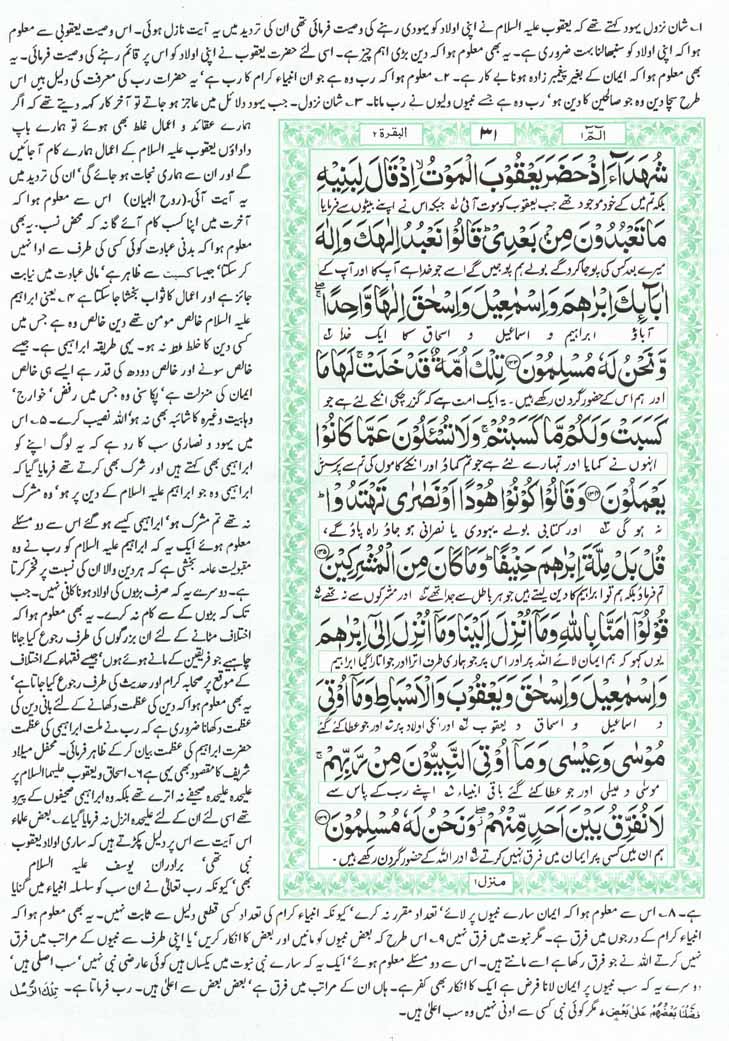 ۱؎ شان نزول یہود کہتے تھے کہ یعقوب علیہ السلام نے اپنی اولاد کو یہودی رہنے کی وصیت فرمائی تھی ان کی تردید میں یہ آیت نازل ہوئی۔ اس وصیت یعقوبی سے معلوم
ہوا کہ اپنی اولاد کو سنبھالنا بہت ضروری ہے۔ یہ بھی معلوم ہوا کہ دین بڑی اہم چیز ہے۔ اسی لئے حضرت یعقوب نے اپنی اولاد کو اس پر قائم رہنے کی وصیت فرمائی۔ یہ
بھی معلوم ہوا کہ ایمان کے بغیر پیغمبر زادہ ہونا بے کار ہے۔ ۲؎ معلوم ہوا کہ رب وہ ہے جو ان انبیاء کرام کا رب ہے' یہ حضرات رب کی معرفت کی دلیل ہیں اس
طرح سچا دین وہ جو صالحین کا دین ہو' رب وہ ہے جسے نبیوں ولیوں نے رب مانا۔ ۳؎ شان نزول۔ جب یہود دلائل میں عاجز ہو جاتے تو آخر کار کہہ دیتے تھے کہ اگر
ہمارے عقائد و اعمال غلط بھی ہوئے تو ہمارے باپ
داداؤں یعقوب علیہ السلام کے اعمال ہمارے کام آ جائیں
گے اور ان سے ہماری نجات ہو جائے گی' ان کی تردید میں
یہ آیت آئی۔ (روح البیان) اس سے معلوم ہوا کہ
آخرت میں اپنا کسب کام آئے گا نہ کہ محض نسب۔ یہ بھی
معلوم ہوا کہ بدنی عبادت کوئی کسی کی طرف سے ادا نہیں
کر سکتا' جیسا کسبت سے ظاہر ہے' مالی عبادت میں نیابت
جائز ہے اور اعمال کا ثواب بخشا جا سکتا ہے ۴؎ یعنی ابراہیم
علیہ السلام خالص مومن تھے دین خالص وہ ہے جس میں
کسی دین کا خلط ملط نہ ہو۔ یہی طریقہ ابراہیمی ہے۔ جیسے
خالص سونے اور خالص دودھ کی قدر ہے ایسے ہی خالص
ایمان کی منزلت ہے' پکا سنی وہ ہے جس میں رفض' خوارج'
وہابیت وغیرہ کا شائبہ بھی نہ ہو' اللہ نصیب کرے۔ ۵؎ اس
میں یہود و نصاریٰ سب کا رد ہے کہ یہ لوگ اپنے کو
ابراہیمی بھی کہتے ہیں اور شرک بھی کرتے تھے فرمایا گیا کہ
ابراہیمی وہ جو ابراہیم علیہ السلام کے دین پر ہو' وہ مشرک
نہ تھے تم مشرک ہو' ابراہیمی کیسے ہو گئے اس سے دو مسئلے
معلوم ہوئے ایک یہ کہ ابراہیم علیہ السلام کو رب نے وہ
مقبولیت عامہ بخشی ہے کہ ہر دین والا ان کی نسبت پر فخر کرتا
ہے۔ دوسرے یہ کہ صرف بڑوں کی اولاد ہونا کافی نہیں۔ جب
تک کہ بڑوں کے سے کام نہ کرے۔ یہ بھی معلوم ہوا کہ
اختلاف مٹانے کے لئے ان بزرگوں کی طرف رجوع کیا جانا
چاہیے جو فریقین کے مانے ہوئے ہوں' جیسے فقہاء کے اختلاف
کے موقع پر صحابہ کرام اور حدیث کی طرف رجوع کیا جاتا ہے'
یہ بھی معلوم ہوا کہ دین کی عظمت دکھانے کے لئے بانی دین کی
عظمت دکھانا ضروری ہے کہ رب نے ملت ابراہیمی کی عظمت
حضرت ابراہیم کی عظمت بیان کر کے ظاہر فرمائی۔ محفل میلاد
شریف کا مقصود بھی یہی ہے ۶؎ اسحاق و یعقوب علیہما السلام پر
علیحدہ علیحدہ صحیفے نہ اترے تھے بلکہ وہ ابراہیمی صحیفوں کے پیرو
تھے اسی لئے ان کے لئے علیحدہ انزل نہ فرمایا گیا ۷؎ بعض علماء
اس آیت سے اس پر دلیل پکڑتے ہیں کہ ساری اولاد یعقوب
نبی تھی' برادران یوسف علیہ السلام
بھی' کیونکہ رب تعالیٰ نے ان سب کو سلسلہ انبیاء میں گنایا
الٓمّٓ ۱ ۳۱ البقرۃ ۲
شُهَدَآءَ اِذْ حَضَرَ يَعْقُوْبَ الْمَوْتُ ۙ اِذْ قَالَ لِبَنِيْهِ
بلکہ تم میں کے خود موجود تھے جب یعقوب کو موت آئی ۱؎ جبکہ اس نے اپنے بیٹوں سے فرمایا
مَا تَعْبُدُوْنَ مِنْۢ بَعْدِيْ ؕ قَالُوْا نَعْبُدُ اِلٰهَكَ وَاِلٰهَ
میرے بعد کس کی پوجا کرو گے بولے ہم پوجیں گے اسے جو خدا ہے آپ کا اور آپ کے
اٰبَآئِكَ اِبْرٰهٖمَ وَاِسْمٰعِيْلَ وَاِسْحٰقَ اِلٰهًا وَّاحِدًا ۖۚ
آباؤ ابراہیم و اسماعیل و اسحاق کا ایک خدا ۲؎
وَّنَحْنُ لَهٗ مُسْلِمُوْنَ ﴿۱۳۳﴾ تِلْكَ اُمَّةٌ قَدْ خَلَتْ ۚ لَهَا مَا
اور ہم اس کے حضور گردن رکھے ہیں۔ یہ ایک امت ہے کہ گزر چکی انکے لئے ہے جو
كَسَبَتْ وَلَكُمْ مَّا كَسَبْتُمْ ۚ وَلَا تُسْـَٔلُوْنَ عَمَّا كَانُوْا
انہوں نے کمایا اور تمہارے لئے ہے جو تم کماؤ اور انکے کاموں کی تم سے پرسش
يَعْمَلُوْنَ ﴿۱۳۴﴾ وَقَالُوْا كُوْنُوْا هُوْدًا اَوْ نَصٰرٰى تَهْتَدُوْا ؕ
نہ ہو گی ۳؎ اور کتابی بولے یہودی یا نصرانی ہو جاؤ راہ پاؤ گے،
قُلْ بَلْ مِلَّةَ اِبْرٰهٖمَ حَنِيْفًا ؕ وَمَا كَانَ مِنَ الْمُشْرِكِيْنَ ﴿۱۳۵﴾
تم فرماؤ بلکہ ہم تو ابراہیم کا دین لیتے ہیں جو ہر باطل سے جدا تھے ۴؎ اور مشرکوں سے نہ تھے ۵؎
قُوْلُوْۤا اٰمَنَّا بِاللّٰهِ وَمَاۤ اُنْزِلَ اِلَيْنَا وَمَاۤ اُنْزِلَ اِلٰۤى اِبْرٰهٖمَ
یوں کہو کہ ہم ایمان لائے اللہ پر اور اس پر جو ہماری طرف اترا اور جو اتارا گیا ابراہیم
وَاِسْمٰعِيْلَ وَاِسْحٰقَ وَيَعْقُوْبَ وَالْاَسْبَاطِ وَمَاۤ اُوْتِيَ
و اسماعیل و اسحاق و یعقوب ۶؎ اور انکی اولاد پر ۷؎ اور جو عطا کئے گئے
مُوْسٰى وَعِيْسٰى وَمَاۤ اُوْتِيَ النَّبِيُّوْنَ مِنْ رَّبِّهِمْ ۚ
موسیٰ و عیسیٰ اور جو عطا کئے گئے باقی انبیاء ۸؎ اپنے رب کے پاس سے
لَا نُفَرِّقُ بَيْنَ اَحَدٍ مِّنْهُمْ ۖ وَنَحْنُ لَهٗ مُسْلِمُوْنَ ﴿۱۳۶﴾
ہم ان میں کسی پر ایمان میں فرق نہیں کرتے ۹؎ اور اللہ کے حضور گردن رکھے ہیں۔
منزل ۱
ہے۔ ۸؎ اس سے معلوم ہوا کہ ایمان سارے نبیوں پر لائے' تعداد مقرر نہ کرے' کیونکہ انبیاء کرام کی تعداد کسی قطعی دلیل سے ثابت نہیں۔ یہ بھی معلوم ہوا کہ
انبیاء کرام کے درجوں میں فرق ہے۔ مگر نبوت میں فرق نہیں ۹؎ اس طرح کہ بعض نبیوں کو مانیں اور بعض کا انکار کریں' یا اپنی طرف سے نبیوں کے مراتب میں فرق
نہیں کرتے اللہ نے جو فرق رکھا ہے اسے مانتے ہیں۔ اس سے دو مسئلے معلوم ہوئے' ایک یہ کہ سارے نبی نبوت میں یکساں ہیں کوئی عارضی نبی نہیں' سب اصلی ہیں'
دوسرے یہ کہ سب نبیوں پر ایمان لانا فرض ہے ایک کا انکار بھی کفر ہے۔ ہاں ان کے مراتب میں فرق ہے' بعض بعض سے اعلیٰ ہیں۔ رب فرماتا ہے۔ تِلْكَ الرُّسُلُ
فَضَّلْنَا بَعْضَهُمْ عَلٰى بَعْضٍ ؕ مگر کوئی نبی کسی سے ادنیٰ نہیں وہ سب اعلیٰ ہیں۔